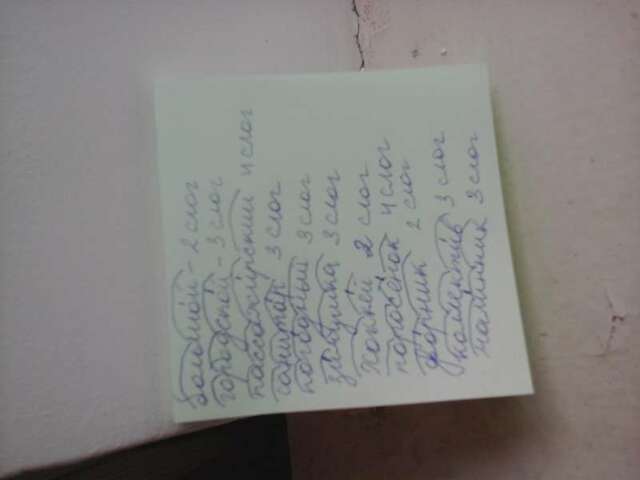 большой - 2 слог
городской - 3 слог
пассажирский 4 слог
санитар 3 слог
погодный 3 слог
зимушка 3 слог
хоккей 2 слог
поросёнок 4 слог
2 слог
коллектив 3 слог
малинник 3 слог